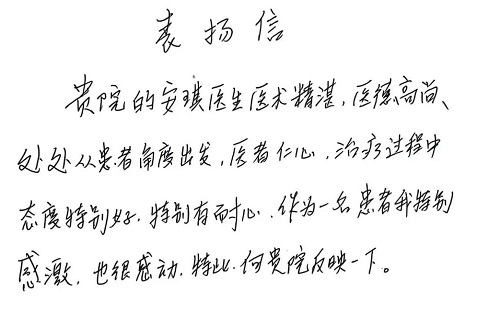 表扬信
贵院的安琪医生医术精湛，医德高尚、
处处从患者角度出发，医者仁心，治疗过程中
态度特别好．特别有耐心．作为一名患者我特别
感激，也很感动．特此．向贵院反映一下。